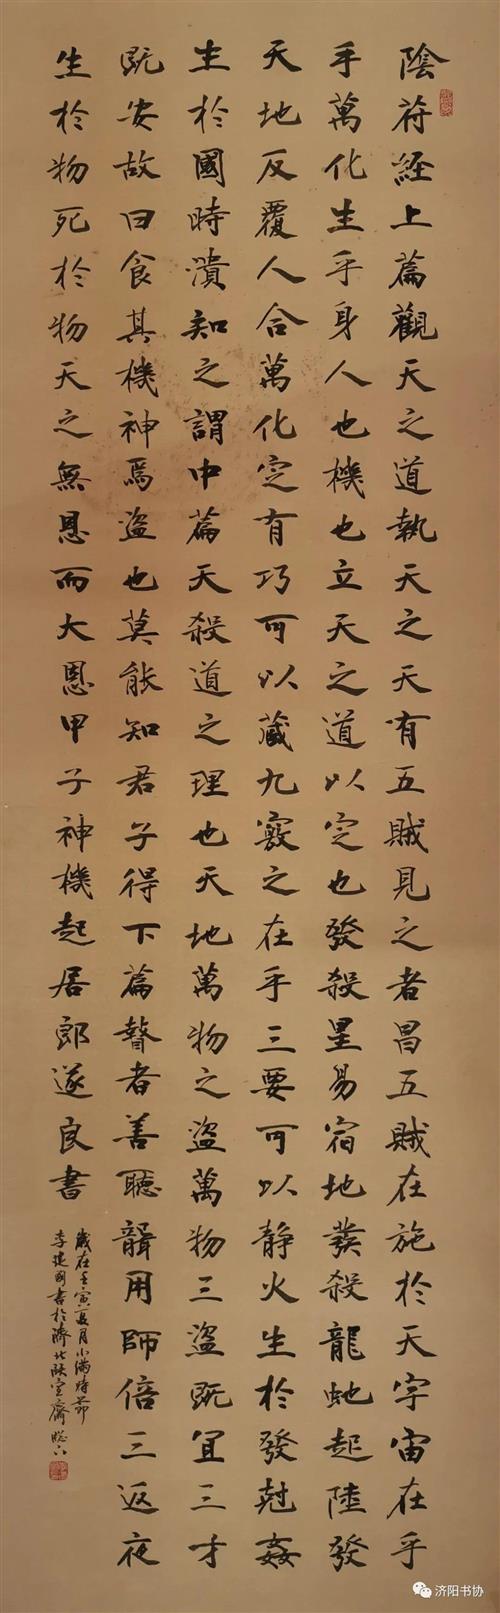 陰符經上篇觀天之道執天之天有五賊見之者昌五賊在施於天宇宙在乎
手萬化生乎身人也機也立天之道以定也發殺星易宿地發殺龍虵起陸發
天地反覆人合萬化定有巧可以藏九竅之在乎三要可以静火生於發尅姦
生於國時潰知之謂中篇天殺道之理也天地萬物之盜萬物三盜既宜三才
既安故曰食其機神焉盜也莫能知君子得下篇瞽者善聽聾用師倍三返夜
生於物死於物天之無恩而大恩甲子神機起居郎遂良書
歲在壬寅夏月小滿時節
李建國書於濟北室齋
济阳书协